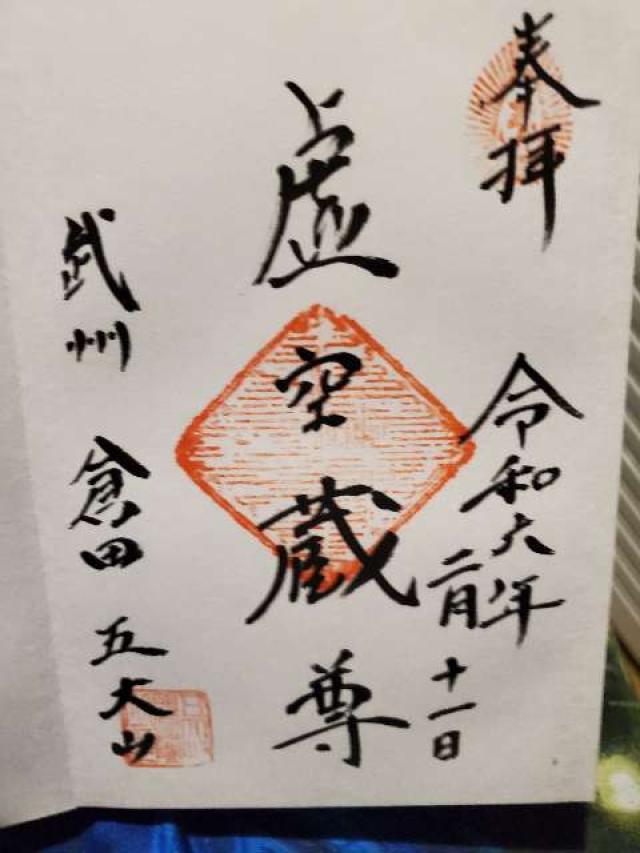 奉拝
令和六年
二月
十一日
虚空蔵尊
武州
倉田
五大山